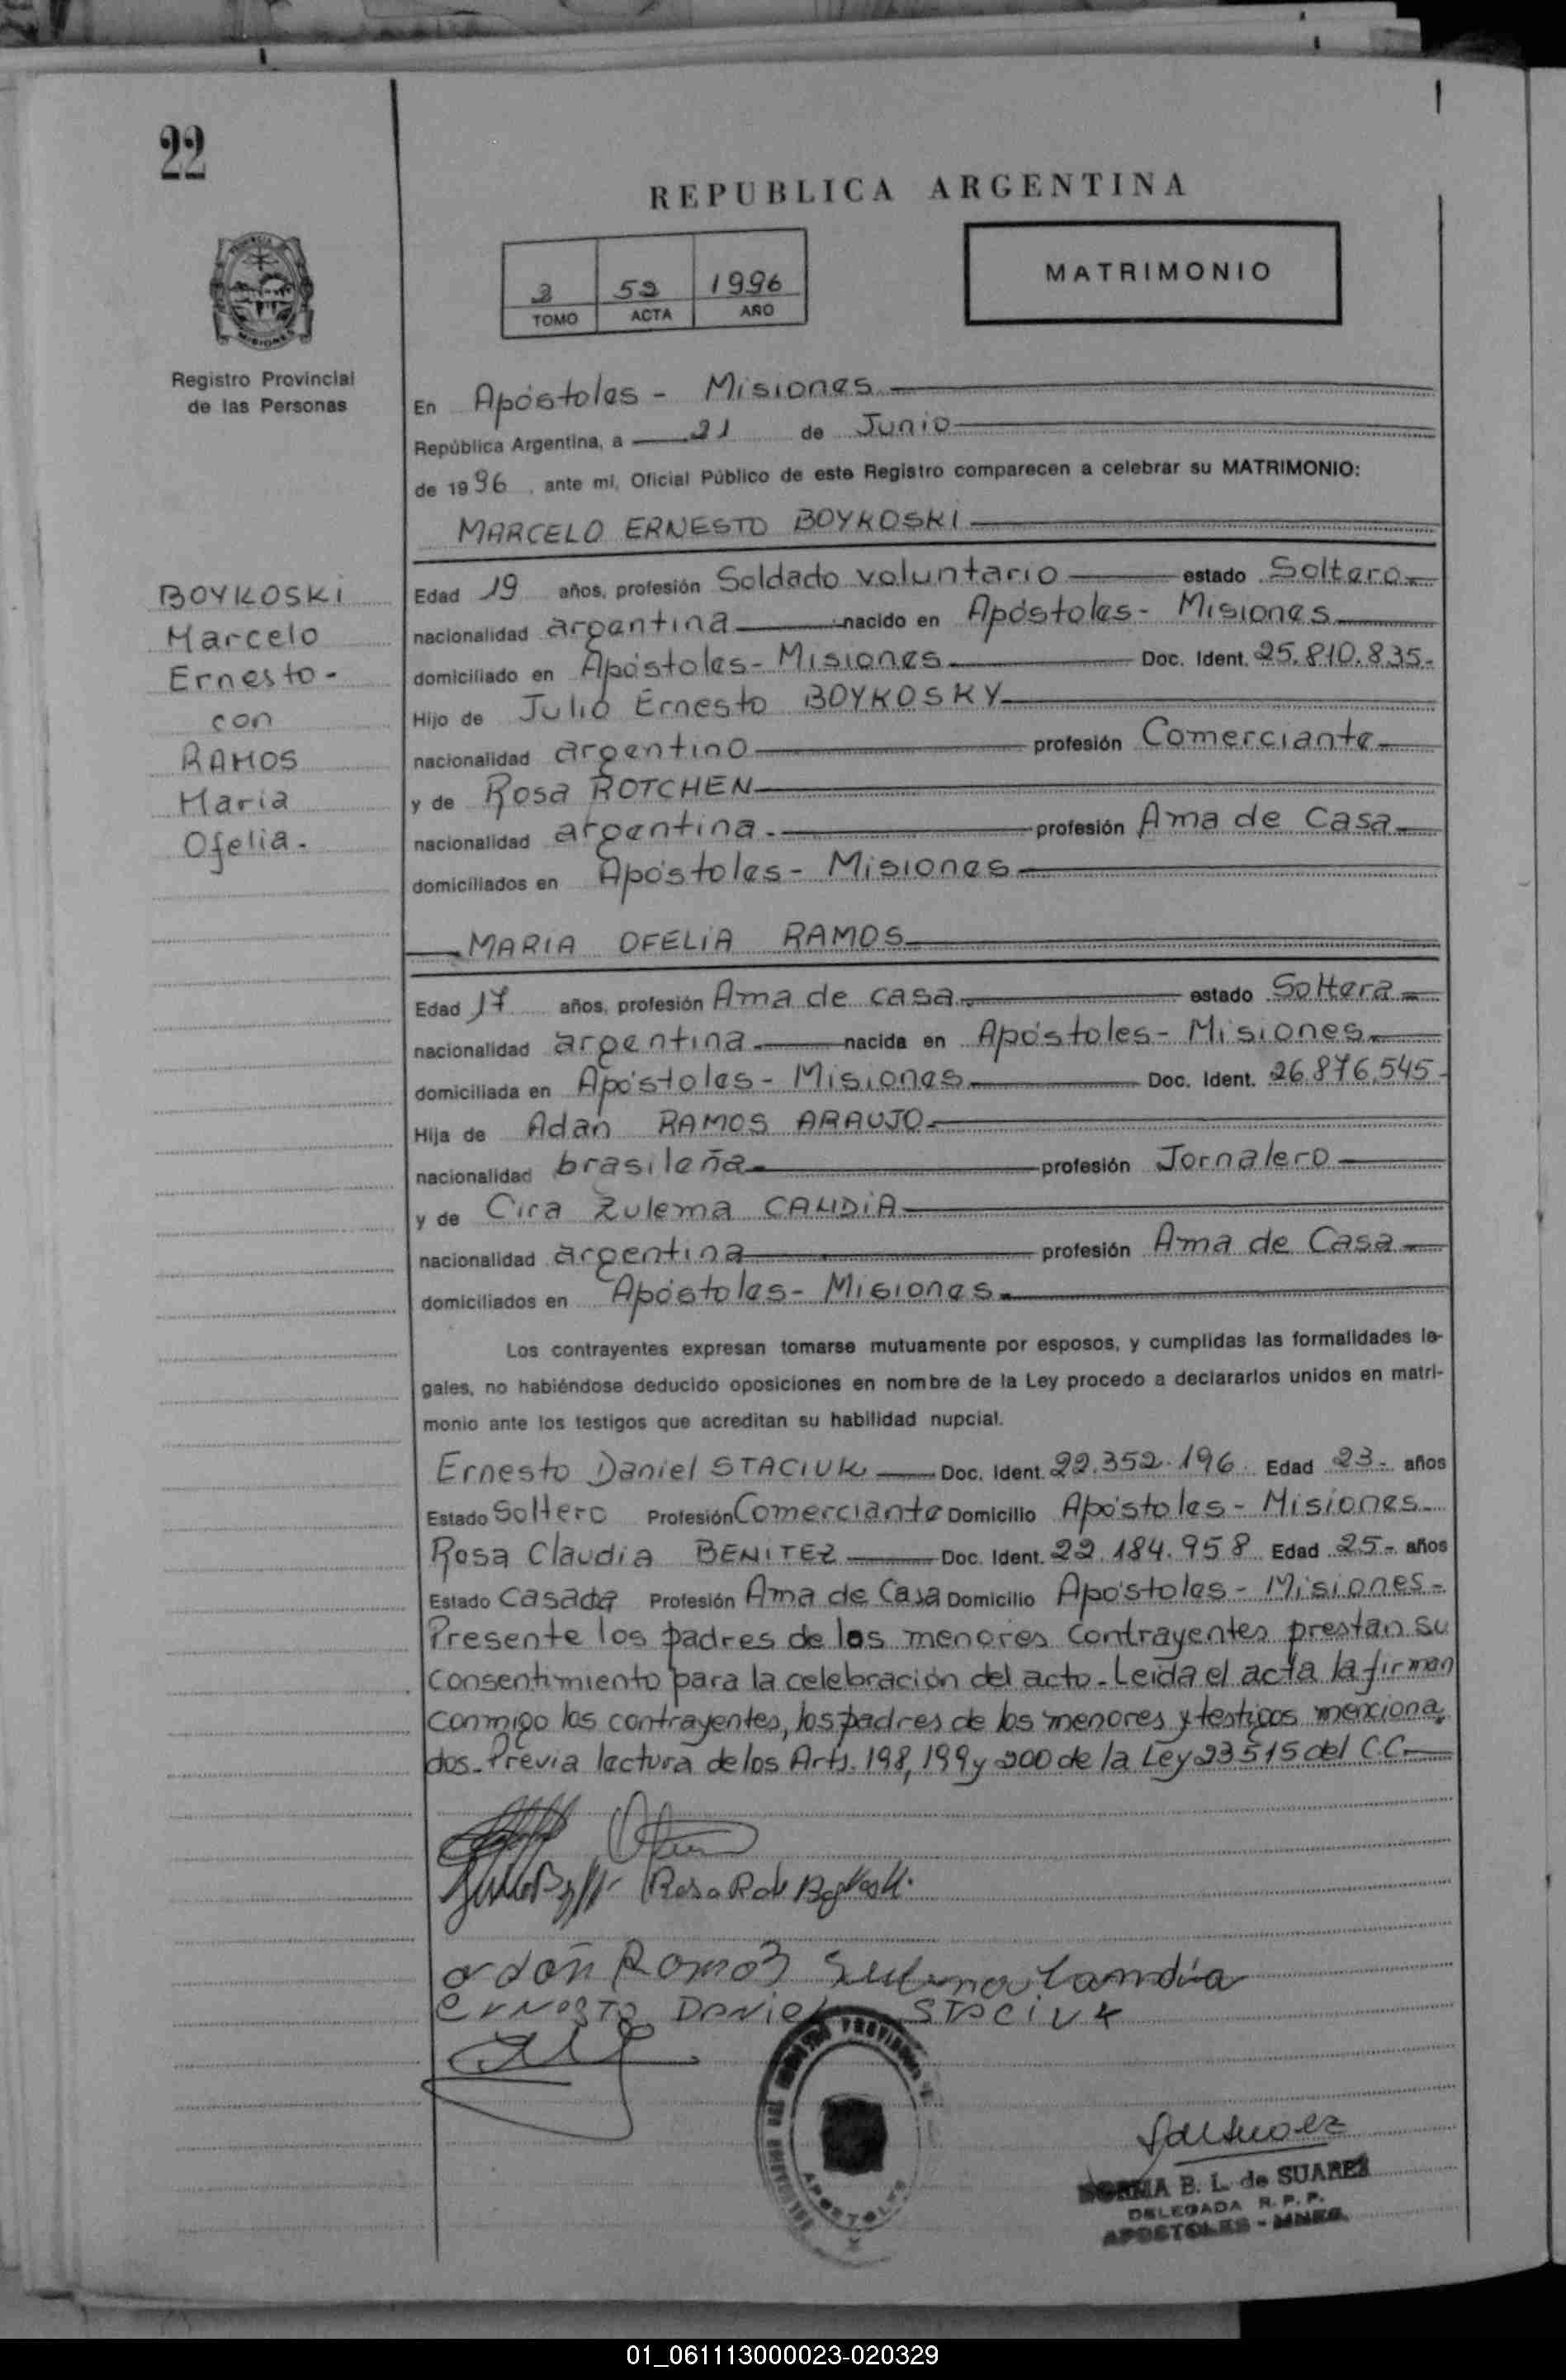 22
REPUBLICA ARGENTINA
MATRIMONIO
2 52 1996
TOMO ACTA AÑO
Registro Provincial
de las Personas
En Apóstoles - Misiones
República Argentina, a 21 de Junio
de 1996, ante mi, Oficial Público de este Registro comparecen a celebrar su MATRIMONIO:
MARCELO ERNESTO BOYKOSKI
BOYKOSKI
Marcelo
Ernesto-
con
RAMOS
Maria
Ofelia.
Edad 19 años, profesión Soldado voluntario estado Soltero
nacionalidad argentina nacido en Apóstoles - Misiones
domiciliado en Apóstoles - Misiones Doc. Ident. 25.810.835-
Hijo de Julio Ernesto BOYKOSKY
nacionalidad argentino profesión Comerciante
y de Rosa ROTCHEN
nacionalidad argentina. profesión Ama de Casa
domiciliados en Apóstoles - Misiones
MARIA OFELIA RAMOS
Edad 17 años, profesión Ama de casa estado Soltera
nacionalidad argentina nacida en Apóstoles - Misiones
domiciliada en Apóstoles - Misiones Doc. Ident. 26.876.545-
Hija de Adán RAMOS ARAUJO
nacionalidad brasileña profesión Jornalero
y de Cira Zulema
nacionalidad argentina profesión Ama de Casa
domiciliados en Apóstoles - Misiones
Los contrayentes expresan tomarse mutuamente por esposos, y cumplidas las formalidades le-
gales, no habiéndose deducido oposiciones en nombre de la Ley procedo a declararlos unidos en matri-
monio ante los testigos que acreditan su habilidad nupcial.
Ernesto Daniel STACIUK Doc. Ident. 22.352.196 Edad 23- años
Estado Soltero Profesión Comerciante Domicilio Apóstoles - Misiones
Rosa Claudia BENITEZ Doc. Ident. 22.184.958 Edad 25- años
Estado Casada Profesión Ama de Casa Domicilio Apóstoles - Misiones-
Presente los padres de los menores contrayentes prestan su
consentimiento para la celebración del acto. Leída el acta la firman
conmigo los contrayentes, los padres de los menores y testigos menciona
dos. Previa lectura de los Arts. 198, 199 y 200 de la Ley 23515 del C.C.
Rosa R de
adan Ramos
ernesto Daniel STACIUK
APOSTOLES
NORMA B. L. de SUAREZ
DELEGADA R. P. P.
APOSTOLES - MNES.
01_061113000023-020329